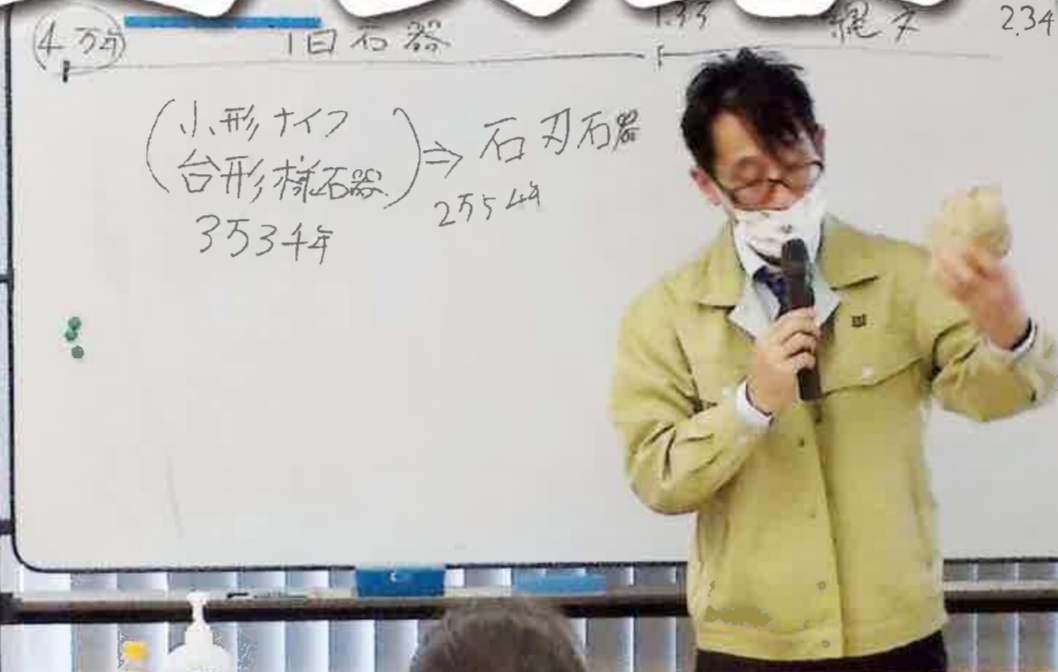 4万年 旧石器 1.33 縄文 2.34
(小形ナイフ
台形様石器) ⇒ 石刃石器
3万5千年 2万5千年